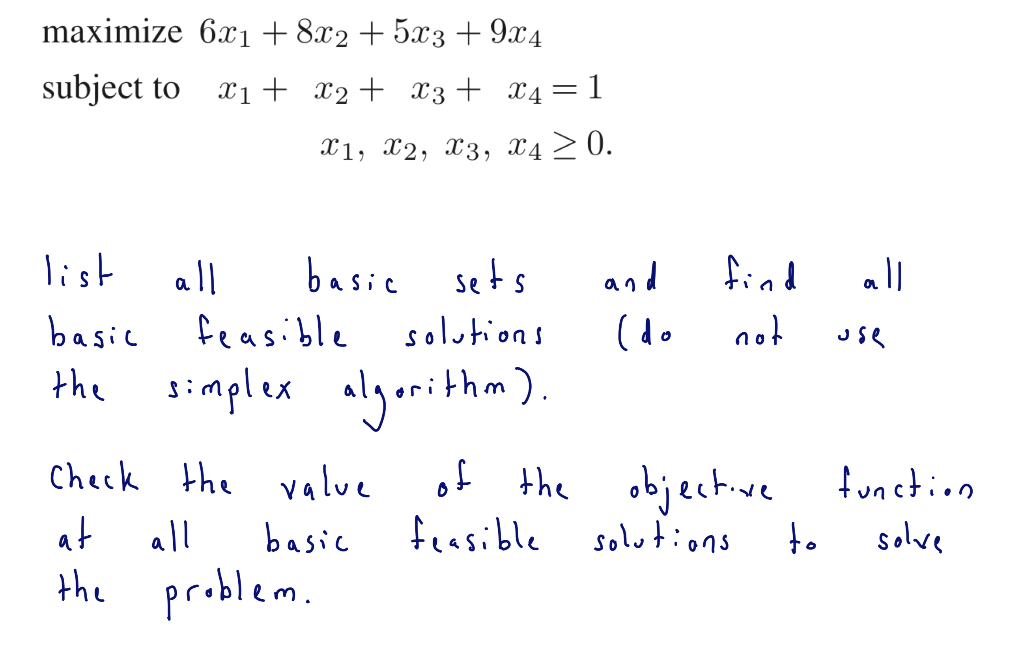 maximize 6x₁ + 8x₂ + 5x₃ + 9x₄
subject to x₁ + x₂ + x₃ + x₄ = 1
x₁, x₂, x₃, x₄ ≥ 0.
list all basic sets and find all
basic feasible solutions (do not use
the simplex algorithm).
Check the value of the objective function
at all basic feasible solutions to solve
the problem.